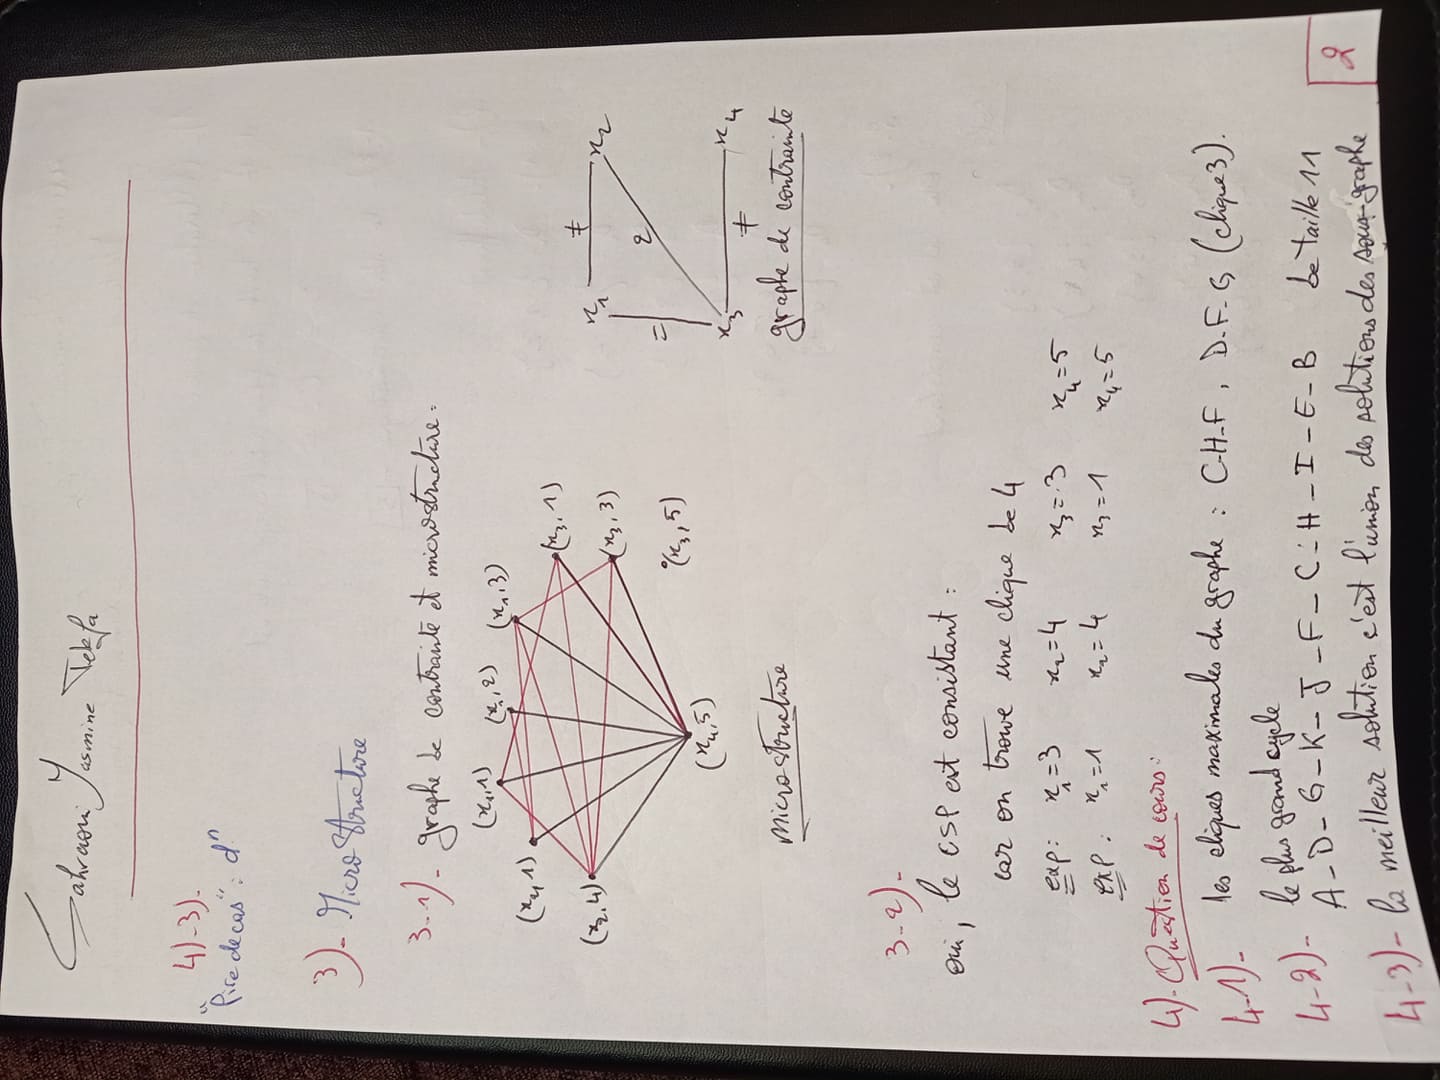 Sahraoui Yasmine Tekfa
4)-3)-
"Pire de cas" : dⁿ
3)- MicroStructure
3-1)- graphe de contrainte et microstructure:
(x₁,1) (x₁,2) (x₁,3)
(x₂,1)
(x₃,1)
(x₂,4)
(x₃,3)
(x₃,5)
(x₄,5)
microstructure
x₁ ≠ x₂
= 2
x₃ ≠ x₄
graphe de contrainte
3-2)-
oui, le CSP est consistant :
car on trouve une clique de 4
exp: x₁=3 x₂=4 x₃=3 x₄=5
exp: x₁=1 x₂=4 x₃=1 x₄=5
4)- Question de cours:
4-1)- les cliques maximales du graphe : C-H-F, D-F-G (clique 3).
4-2)- le plus grand cycle
A-D-G-K-J-F-C-H-I-E-B de taille 11
4-3)- la meilleur solution c'est l'union des solutions des sous-graphe
2